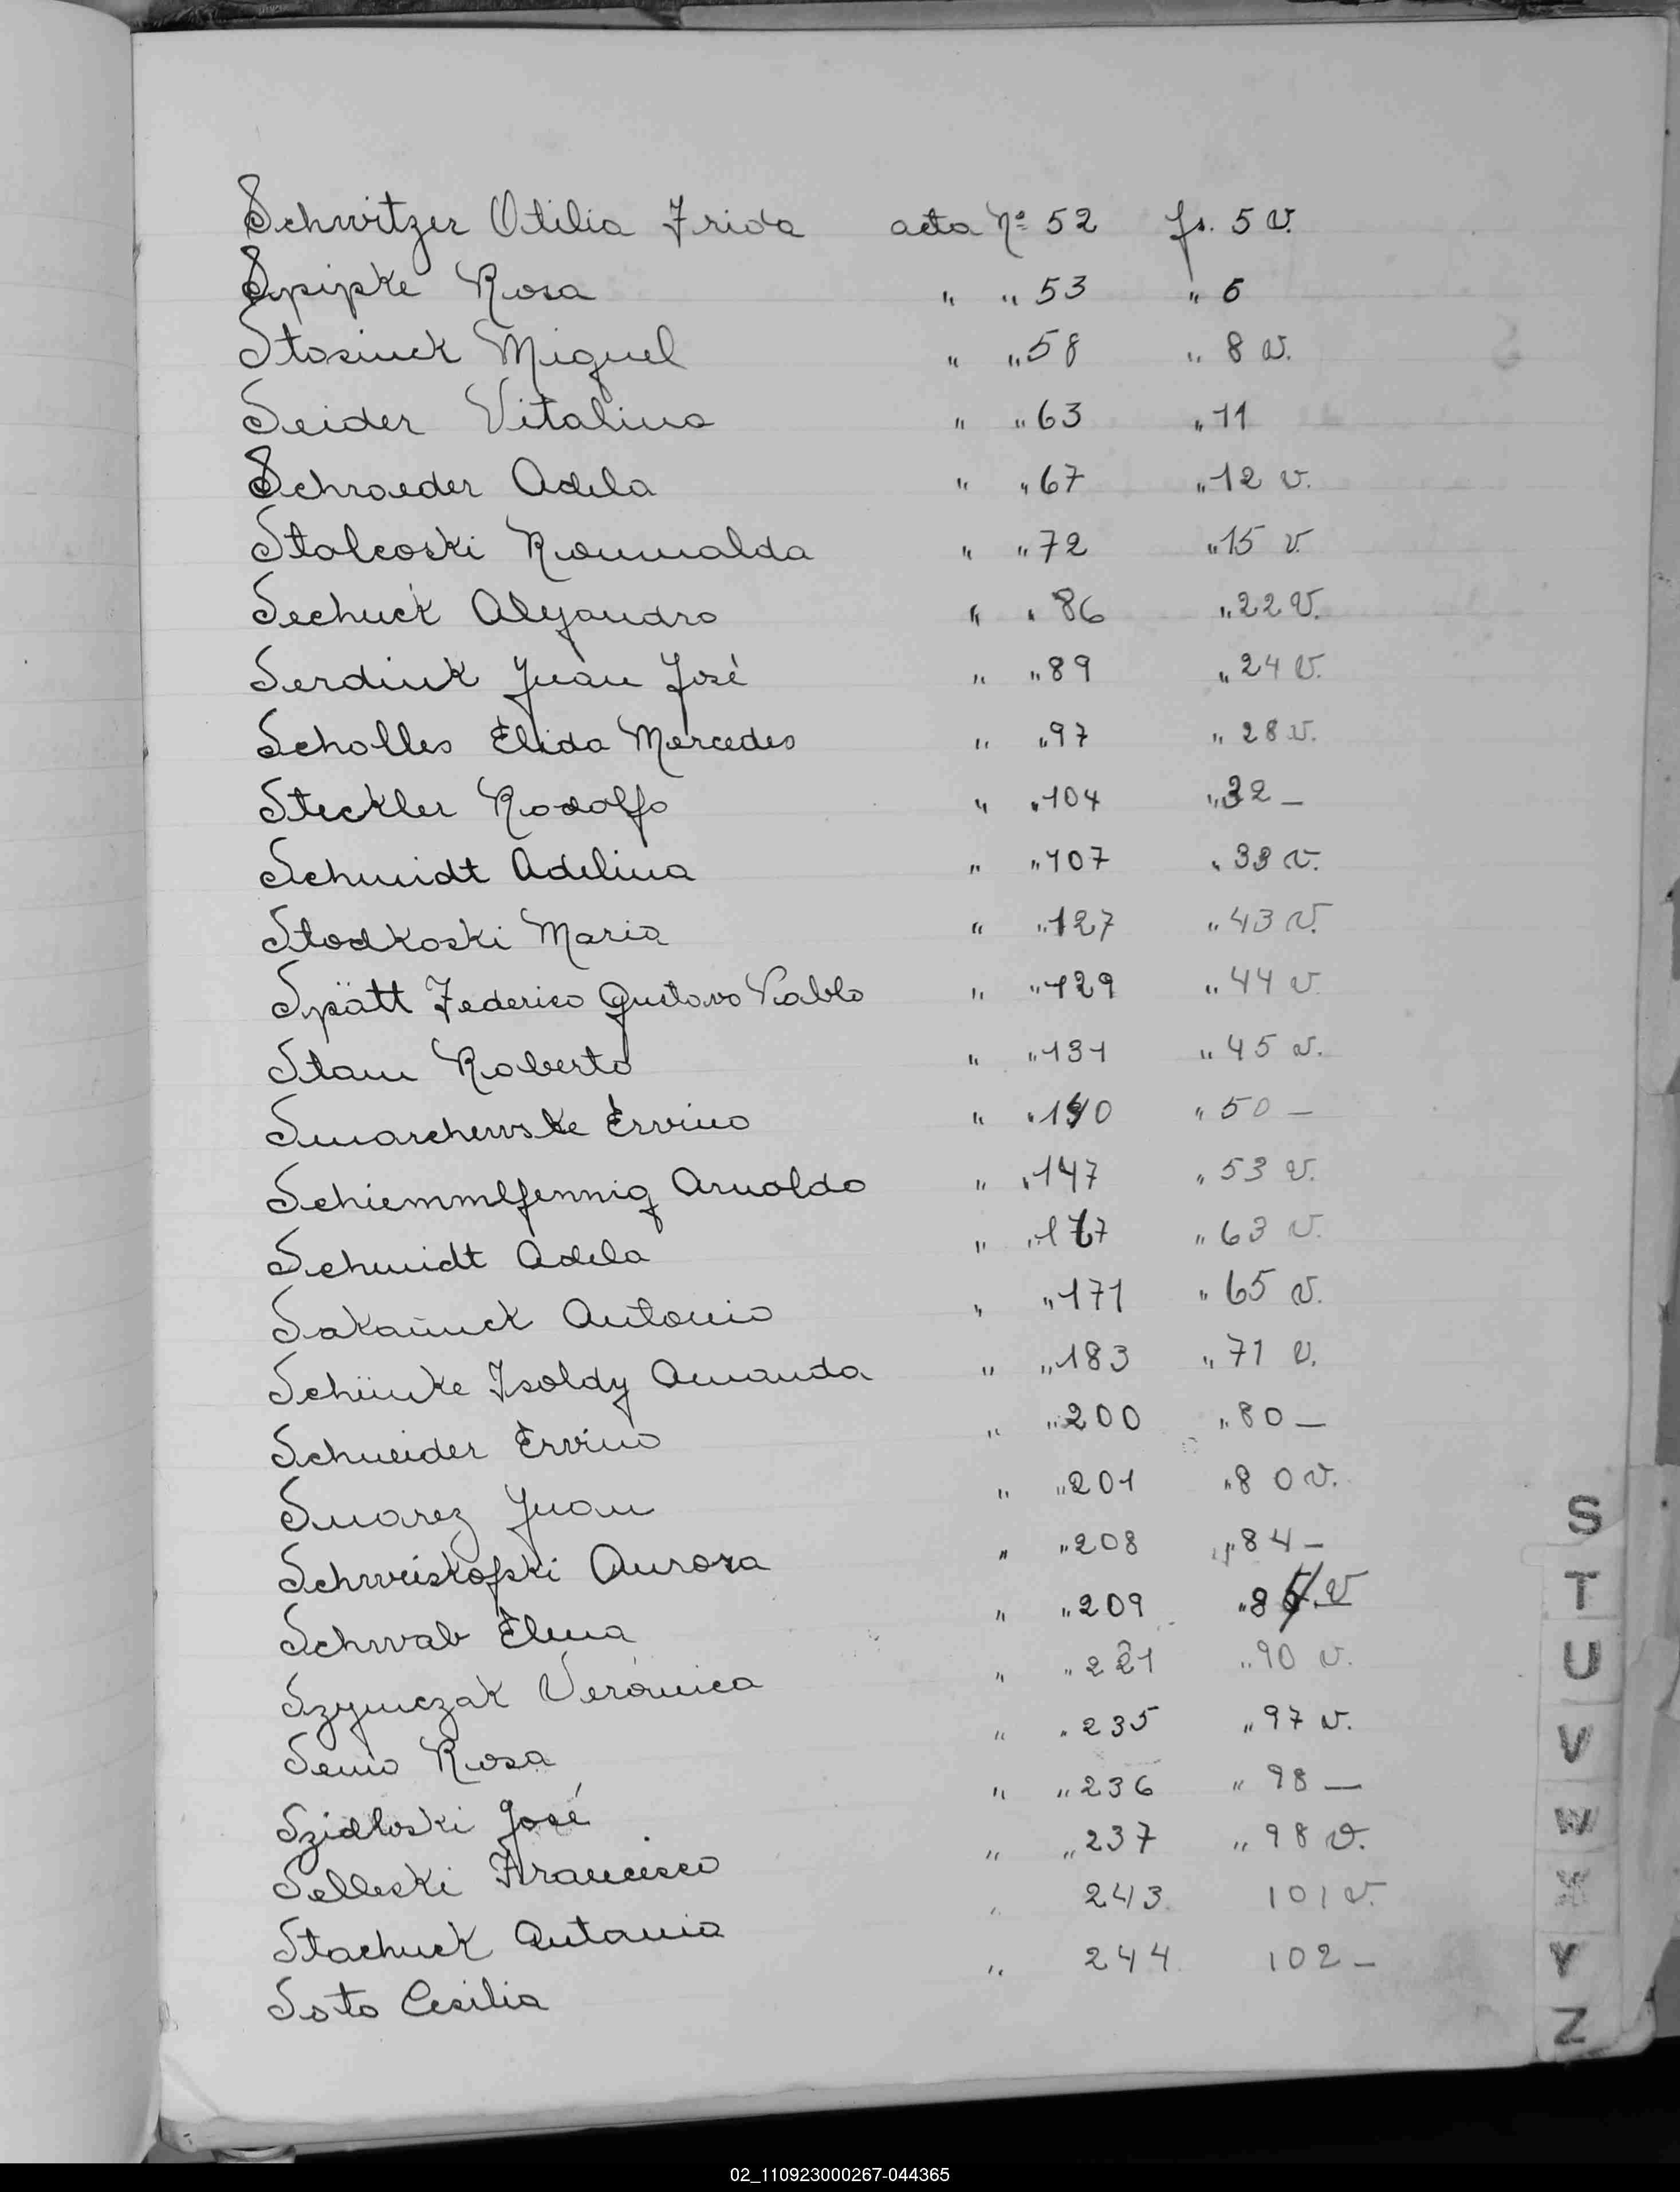 Schwitzer Otilia Frida acta Nº 52 fs. 5 v.
Spipke Rosa " " 53 " 6
Stosiuck Miguel " " 58 " 8 v.
Seider Vitalina " " 63 " 11
Schroeder Adela " " 67 " 12 v.
Stalcoski Romualda " " 72 " 15 v
Sechuck Alejandro " " 86 " 22 v.
Serdiuk Juan José " " 89 " 24 v.
Scholles Elida Mercedes " " 97 " 28 v.
Steckler Rodolfo " " 104 " 32 —
Schmidt Adelina " " 107 " 33 v.
Stodkoski Maria " " 127 " 43 v.
Spätt Federico Gustavo Pablo " " 129 " 44 v.
Stam Roberto " " 131 " 45 v.
Smarchewske Ervino " " 140 " 50 —
Schiemmlfennig Arnoldo " " 147 " 53 v.
Schmidt Adela " " 167 " 63 v.
Sakaiuck Antonio " " 171 " 65 v.
Schünke Isoldy Amanda " " 183 " 71 v.
Schneider Ervino " " 200 " 80 —
Suarez Juan " " 201 " 80 v.
Schweiskofski Aurora " " 208 " 84 —
Schwab Elena " " 209 " 84 v
Szymczak Verónica " " 221 " 90 v.
Senio Rosa " " 235 " 97 v.
Szidloski José " " 236 " 98 —
Selleski Francisco " " 237 " 98 v.
Stachuck Antonia " 243 101 v.
Soto Cesilia " 244 102 —
S
T
U
V
W
X
Y
Z
02_110923000267-044365